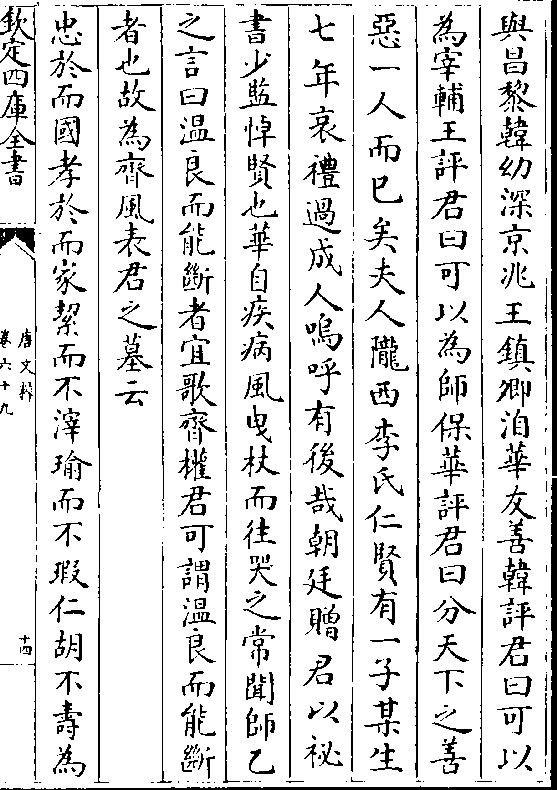 與昌黎韓幼深京兆王鎮卿洎華友善韓評君曰可以
為宰輔王評君曰可以為師保華評君曰分天下之善
惡一人而已矣夫人隴西李氏仁賢有一子某生
七年哀禮過成人嗚呼有後哉朝廷贈君以祕
書少監悼賢也華自疾病風曳杖而往哭之常聞師乙
之言曰温良而能斷者宜歌齊權君可謂温良而能斷
者也故為齊風表君之墓云
忠於而國孝於而家絜而不滓瑜而不瑕仁胡不壽為
欽定四庫全書
唐文粹
卷六十九
十四